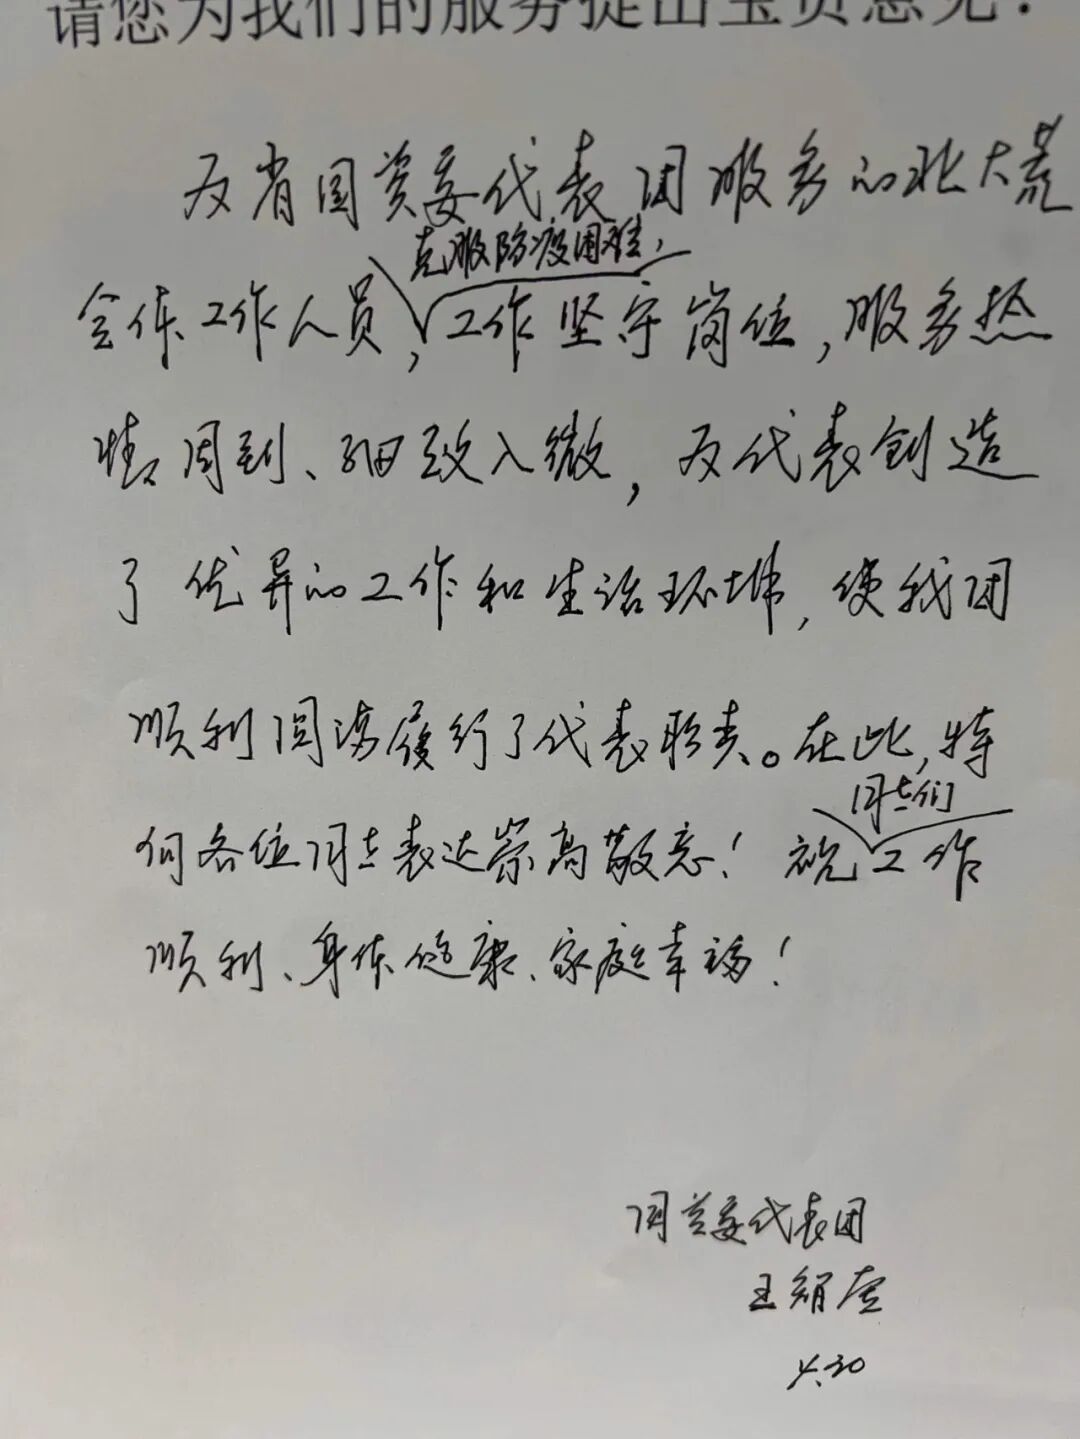 请您为我们的服务提出宝贵意见！
为省国资委代表团服务的北大荒
克服防疫困难，
全体工作人员，工作坚守岗位，服务热
情周到、细致入微，为代表创造
了优异的工作和生活环境，使我团
顺利圆满履行了代表职责。在此，特
同志们
向各位同志表达崇高敬意！祝工作
顺利、身体健康、家庭幸福！
国资委代表团
王智奎
4.30